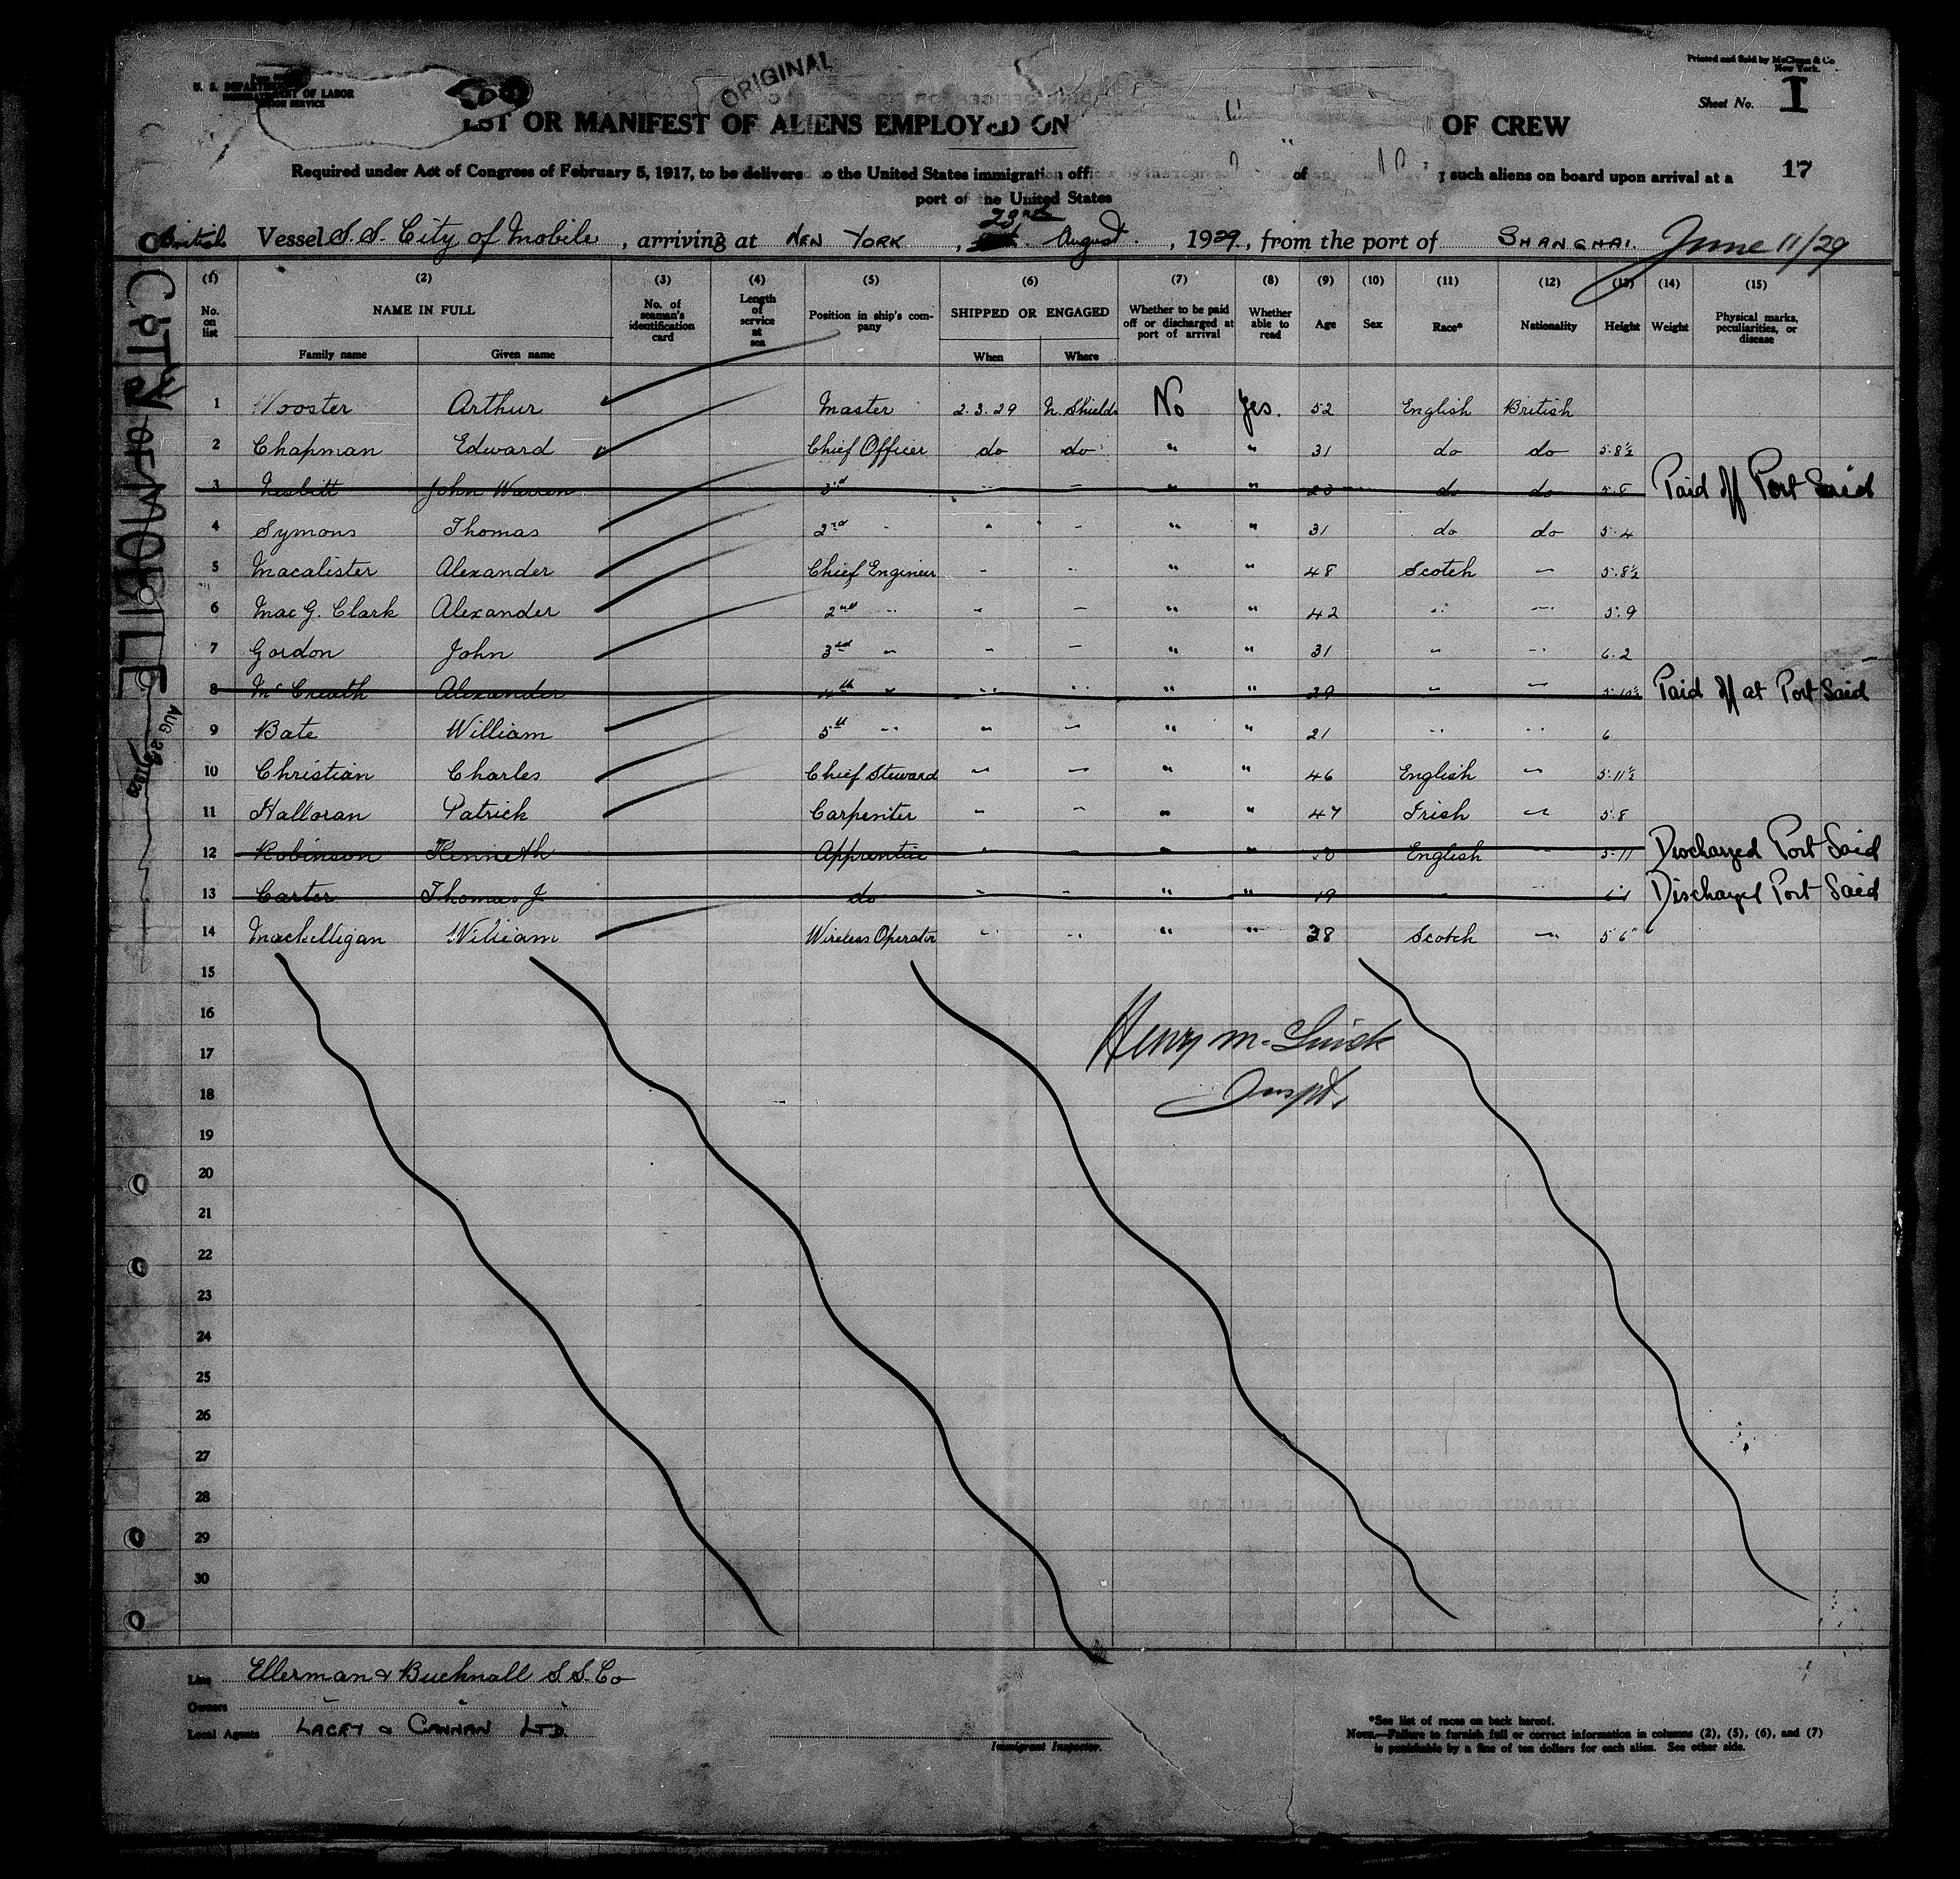 Printed and Sold by McClunn & Co
New York.
U. S. DEPARTMENT OF LABOR
IMMIGRATION SERVICE
ORIGINAL
Sheet No. I
LIST OR MANIFEST OF ALIENS EMPLOYED ON OF CREW
Required under Act of Congress of February 5, 1917, to be delivered to the United States immigration of such aliens on board upon arrival at a
17
port of the United States
British Vessel S.S. City of Mobile, arriving at NEW YORK, 23rd August, 1929, from the port of SHANGHAI. June 11/29
CITY OF MOBILE
AUG 23 1929
(1) (2) (3) (4) (5) (6) (7) (8) (9) (10) (11) (12) (13) (14) (15)
No. on list NAME IN FULL No. of seaman's identification card Length of service at sea Position in ship's company SHIPPED OR ENGAGED Whether to be paid off or discharged at port of arrival Whether able to read Age Sex Race* Nationality Height Weight Physical marks, peculiarities, or disease
Family name Given name When Where
1 Wooster Arthur Master 2.3.29 N. Shields No Yes. 52 English British
2 Chapman Edward Chief Officer do do " " 31 do do 5.8½
3 Nesbitt John Warren 3rd - - " " do do Paid off Port Said
4 Symons Thomas 2nd - " - " " 31 do do 5.4
5 Macalister Alexander Chief Engineer - " " " 48 Scotch - 5.8½
6 Mac G. Clark Alexander 2nd " - - " " 42 " - 5.9
7 Gordon John 3rd " - - " " 31 " " 6.2
8 McCreath Alexander 4th " " " " " 29 " - 5.10½ Paid off at Port Said
9 Bate William 5th " - - " " 21 " " 6
10 Christian Charles Chief Steward - - " " 46 English - 5.11½
11 Halloran Patrick Carpenter - - " " 47 Irish - 5.8
12 Robinson Kenneth Apprentice - - " " English - 5.11 Discharged Port Said
13 Carter Thomas J do - - " " 19 - " Discharged Port Said
14 Mackelligan William Wireless Operator - - " " 38 Scotch - 5 6
15
16
17
Henry M.
18
Inspt.
19
20
21
22
23
24
25
26
27
28
29
30
Line Ellerman & Bucknall S.S. Co
Owners " " "
Local Agents LACEY & CANNAN LTD.
Immigrant Inspector.
*See list of races on back hereof.
NOTE.—Failure to furnish full or correct information in columns (2), (5), (6), and (7)
is punishable by a fine of ten dollars for each alien. See other side.